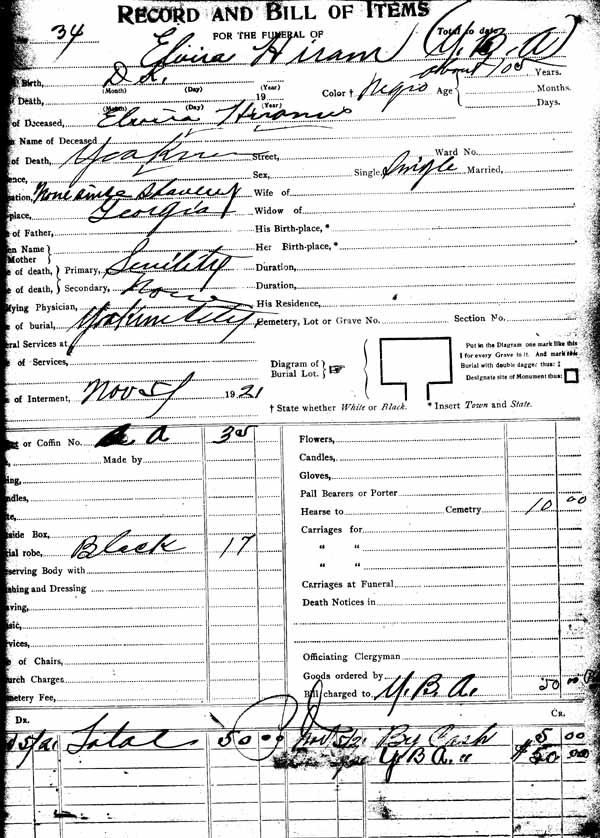 RECORD AND BILL OF ITEMS
34 FOR THE FUNERAL OF Total to date
Elvira Hiram (Y. B. A)
Birth, D.K. about 105 Years.
(Month) (Day) (Year)
of Death, 19 Color † Negro Age Months.
(Month) (Day) (Year) Days.
of Deceased, Elvira
Name of Deceased
of Death, Street, Ward No.
ence, Sex, Single, Single Married,
ation, None since Slavery Wife of
place, Georgia Widow of
of Father, His Birth-place, *
en Name Mother Her Birth-place, *
e of death, Primary, Senility Duration,
e of death, Secondary, None Duration,
fying Physician, His Residence,
e of burial, Yakima City Cemetery, Lot or Grave No. Section No.
eral Services at
e of Services, Diagram of Burial Lot.
Put in the Diagram one mark like this
I for every Grave in it. And mark this
Burial with double dagger thus: ‡
Designate site of Monument thus:
e of Interment, Nov 5/ 1921
† State whether White or Black. * Insert Town and State.
et or Coffin No. A A 35 Flowers,
Made by Candles,
ing, Gloves,
ndles, Pall Bearers or Porter
Hearse to Cemetry 10 00
side Box, Carriages for
ial robe, Black 17 " "
eserving Body with " "
shing and Dressing Carriages at Funeral
aving, Death Notices in
sic,
vices,
e of Chairs, Officiating Clergyman
urch Charges Goods ordered by
metery Fee, Bill charged to Y. B. A. 50
DR. CR.
5/21 Total 50 00 Nov 5/21 By Cash 5 00
Y B A. " $50 00